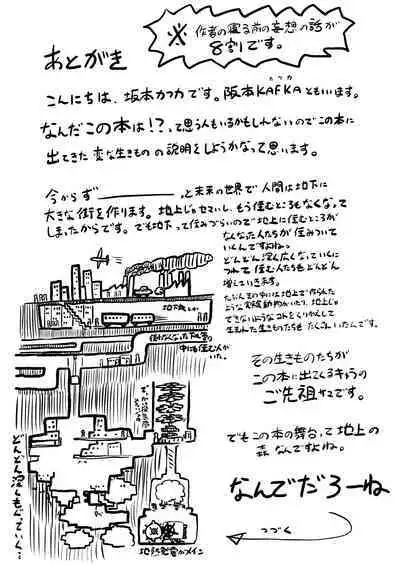 ※ 作者の寝る前の妄想の話が
8割です。
あとがき
こんにちは、坂本カフカです。阪本KAFKAともいいます。
カフカ
なんだこの本は!?って思う人もいるかもしれないのでこの本に
出てきた変な生きものの説明をしようかなって思います。
今からず――――っと未来の世界で人間は地下に
大きな街を作ります。地上じゃせまいし、もう住むところもなくなって
しまったからです。でも地下って住みづらいので地上に住むところが
なくなった人たちが住みついて
いくんですよね。
どんどん深く広くなっていくに
つれて住む人たちもどんどん
増えていきます。
ような実験動物がいたり、地上じゃ
できないようなコトをくりかえして
生まれた生きものたちもたくさんいたんです。
その生きものたちが
この本に出てくるキャラの
ご先祖サマです。
でもこの本の舞台って地上の
森なんですよね。
なんでだろーね
つづく
地下鉄
使わなくなった下水道の
中にも住む人が
いた。
どんどん深くもぐっていく…
地熱発電がメイン